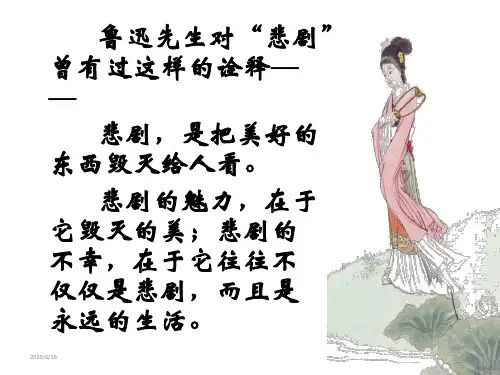 鲁迅先生对“悲剧”
曾有过这样的诠释—
—
悲剧，是把美好的
东西毁灭给人看。
悲剧的魅力，在于
它毁灭的美；悲剧的
不幸，在于它往往不
仅仅是悲剧，而且是
永远的生活。
2020/6/16